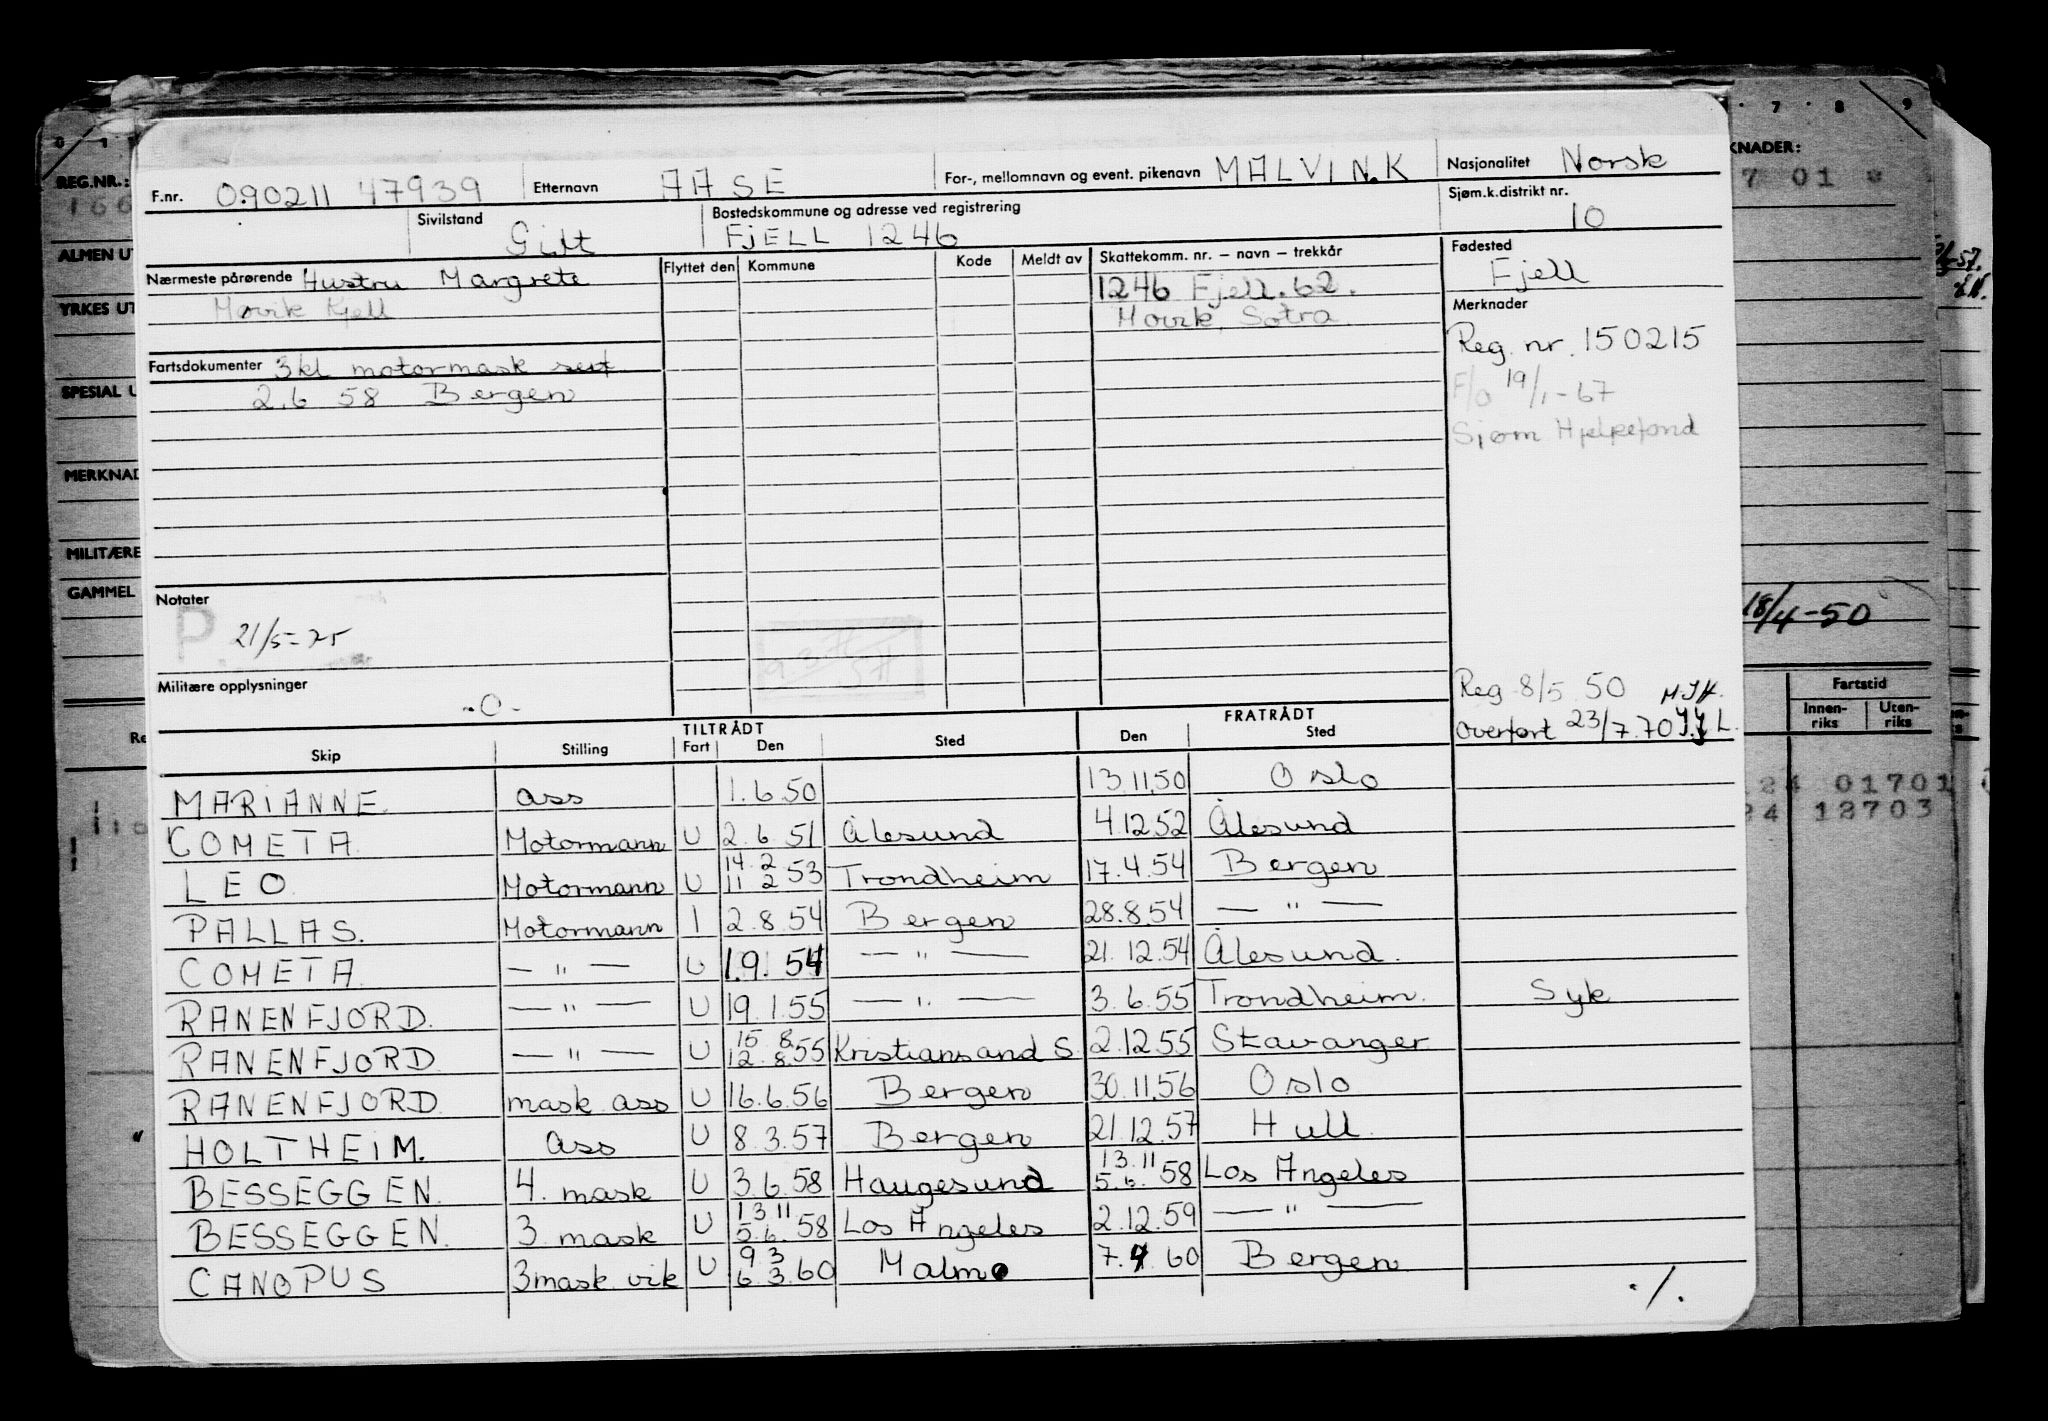 F.nr. 090211 47939 Etternavn AASE For-, mellomnavn og event. pikenavn MALVIN.K Nasjonalitet Norsk
Sivilstand Gift Bostedskommune og adresse ved registrering FJELL 1246 Sjøm.k.distrikt nr. 10
Nærmeste pårørende Hustru Margrete Flyttet den Kommune Kode Meldt av Skattekomm. nr. – navn – trekkår Fødested Fjell
Movik Fjell 1246 Fjell. 62.
Movik, Sotra
Merknader
Reg. nr. 150215
Fartsdokumenter 3 kl motormask sert
2.6 58 Bergen
F/o 19/1-67
Sjøm Hjelpefond
Notater
P. 21/5-75
Militære opplysninger
-0-
Reg 8/5 50
Overført 23/7.70
TILTRÅDT FRATRÅDT
Skip Stilling Fart Den Sted Den Sted
MARIANNE ass 1.6.50 13.11.50 Oslo
COMETA Motormann U 2.6.51 Ålesund 4.12.52 Ålesund
LEO Motormann U 14.2 11 2 53 Trondheim 17.4.54 Bergen
PALLAS. Motormann I 2.8.54 Bergen 28.8.54 — " —
COMETA — " — U 1.9.54 — " — 21.12.54 Ålesund.
RANENFJORD. — " — U 19.1.55 — " — 3.6.55 Trondheim. Syk
RANENFJORD — " — U 15 8. 12.8.55 Kristiansand S. 2.12.55 Stavanger
RANENFJORD mask ass U 16.6.56 Bergen 30.11.56 Oslo
HOLTHEIM. ass U 8.3.57 Bergen 21.12.57 Hull.
BESSEGGEN. 4. mask U 3.6.58 Haugesund 13.11 5.6.58 Los Angeles
BESSEGGEN. 3 mask U 13 11 5.6.58 Los Angeles 2.12.59 — " —
CANOPUS 3 mask vik U 9 3 6 3.60 Malmø 7.4 60 Bergen
./.
0 1
REG.NR.:
166
ALMEN UT
YRKES UT
SPESIAL U
MERKNAD
MILITÆRE
GAMMEL
Re
7 8 9
KNADER:
7 01
18/4-50
Fartstid
Innen-riks Uten-riks
24 01701
24 12703